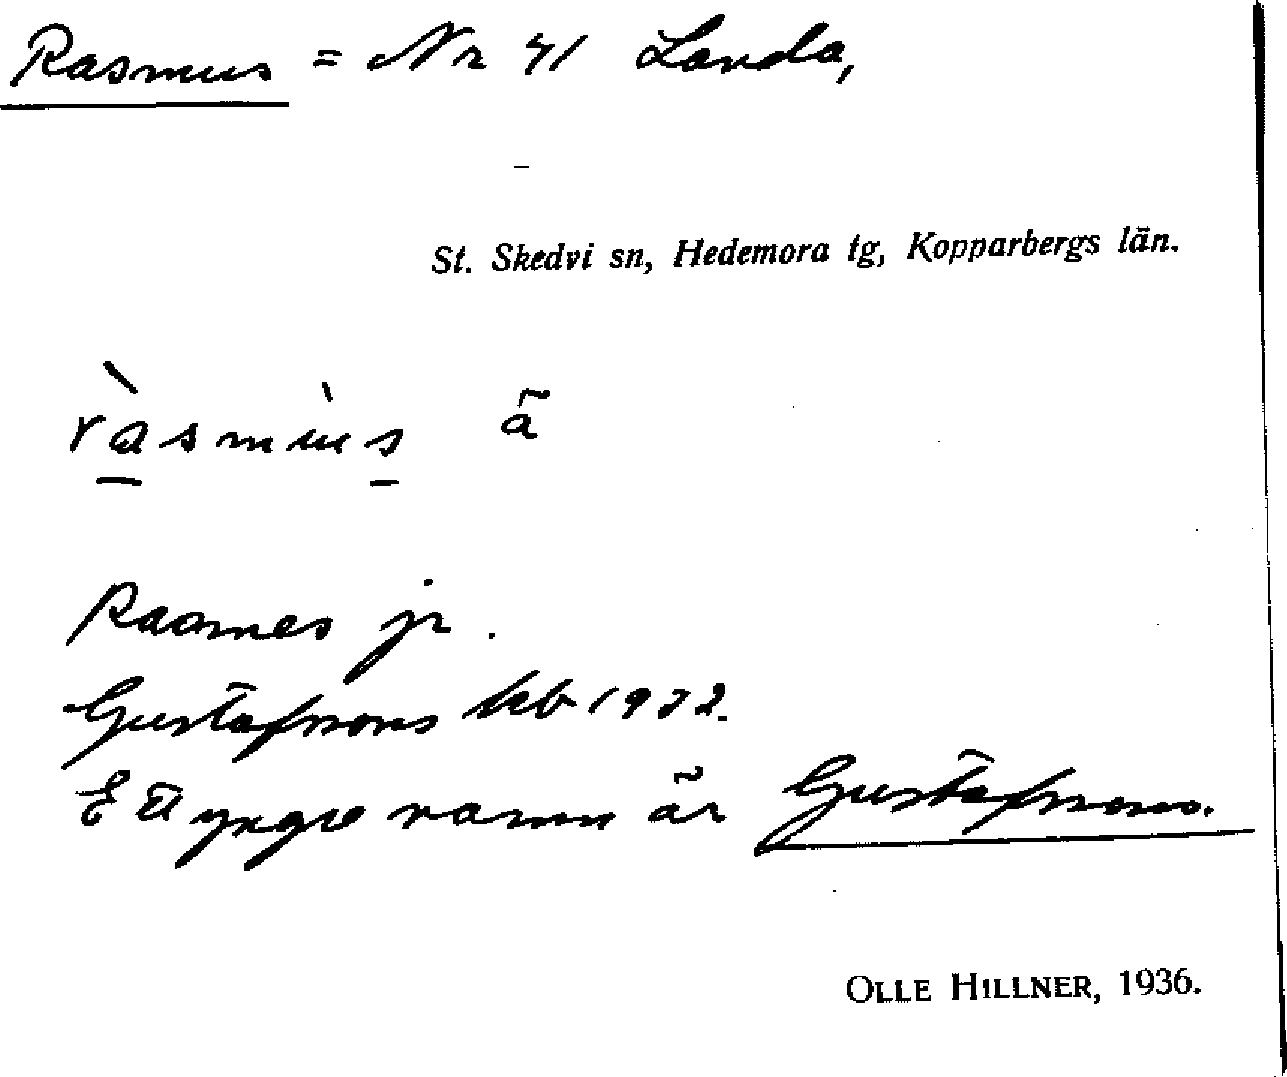 Rasmus = Nr 41 Landa,
St. Skedvi sn, Hedemora tg, Kopparbergs län.
ràsmùs ā
Rasmes jr.
Gustafssons kb 1932.
Ett yngre namn är Gustafssons.
OLLE HILLNER, 1936.